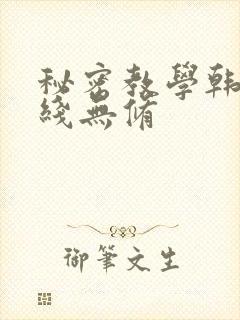 秘密教學韩
綫無脩
御筆文生